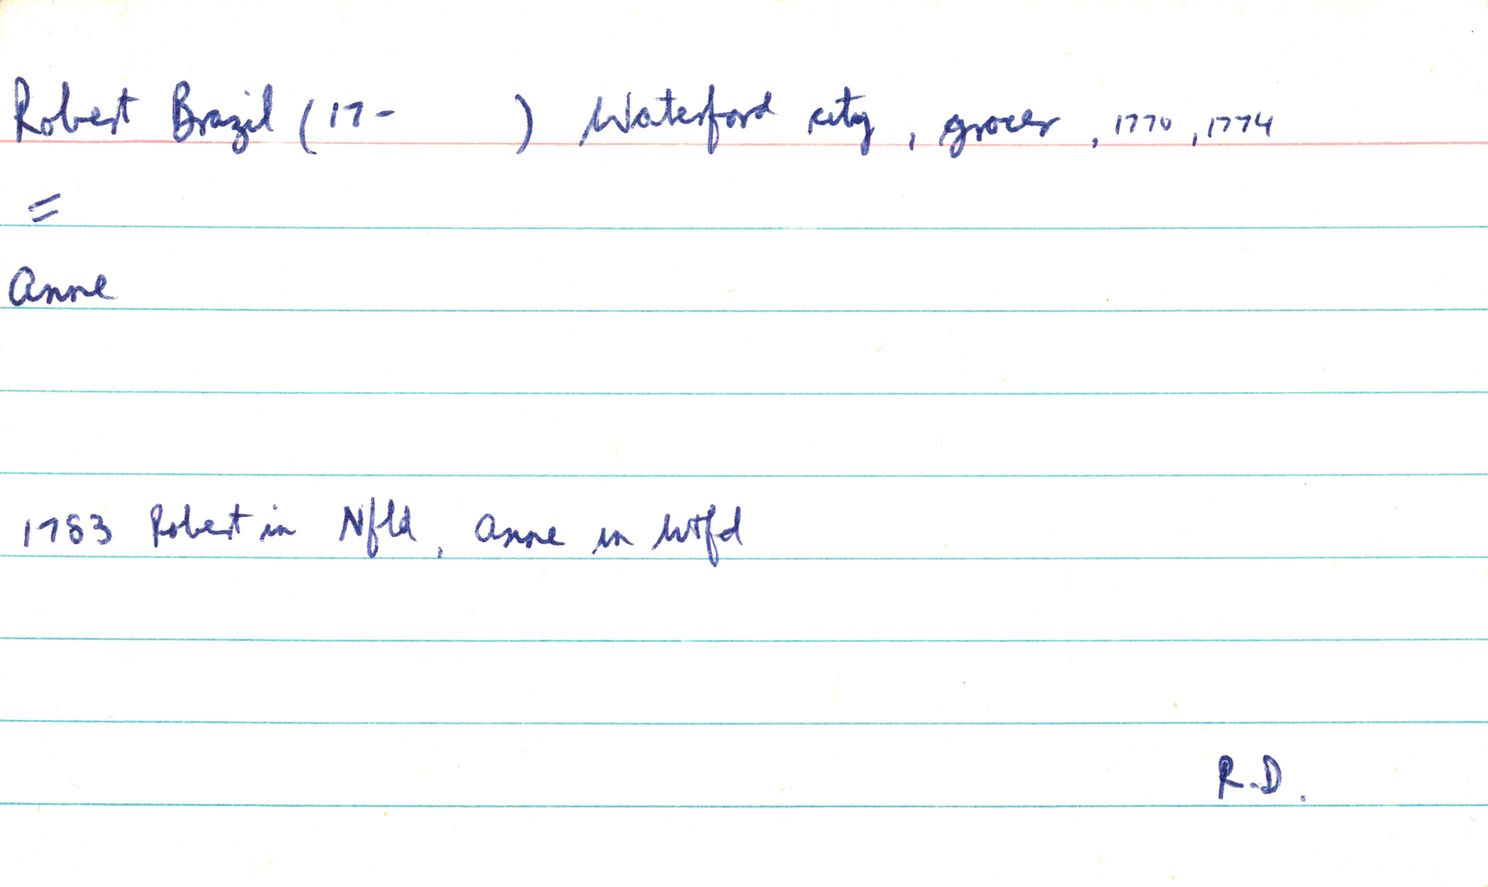 Robert Brazil (17-        ) Waterford city, grocer, 1770, 1774
=
Anne
1783 Robert in Nfld, Anne in Wtfd
R.D.